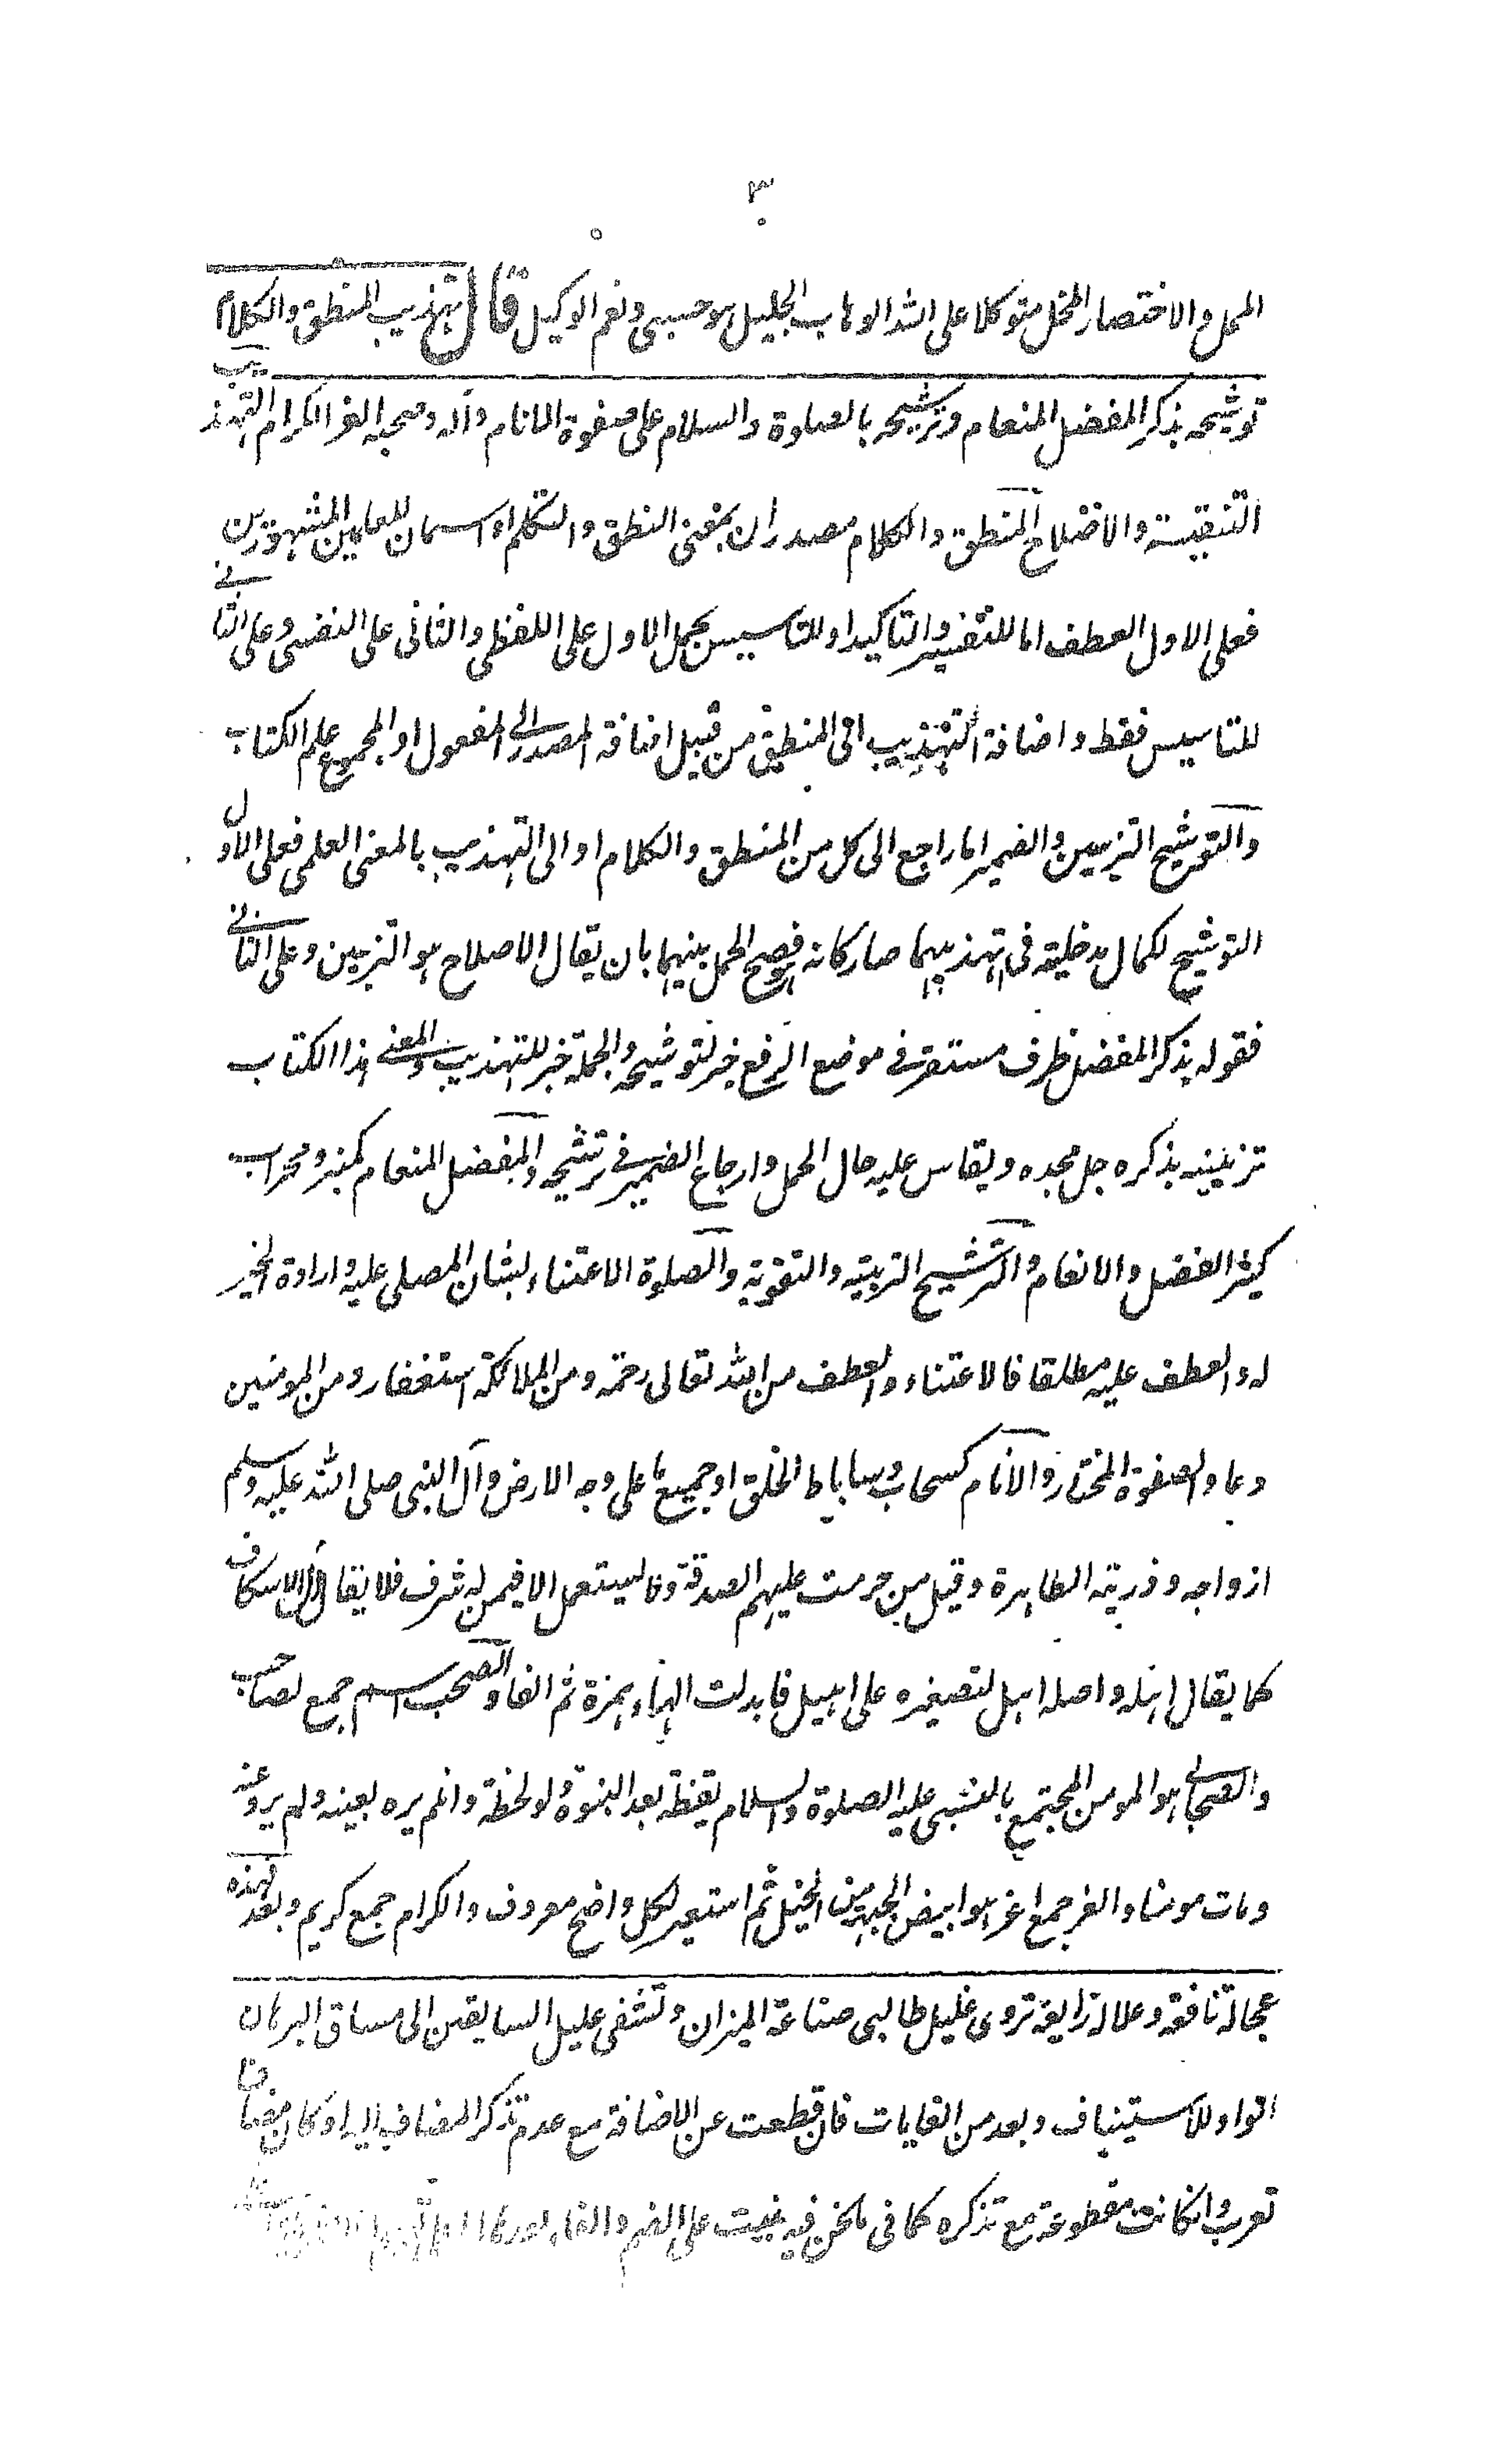 ٣
الممل والاختصار المخل متوكلا على الله الوهاب الجليل هو حسبى ونعم الوكيل قال تهذيب المنطق والكلام
توشيحه بذكر المفضل المنعام وترشيحه بالصلوة والسلام على صفوة الانام وآله وصحبه الغر الكرام التهذيب
التنقية والاصلاح المنطق والكلام مصدران بمعنى النطق والتكلم او اسمان للعلمين المشهورين
فعلى الاول العطف اما للتفسير والتاكيد او للتاسيس بحمل الاول على اللفظى والثانى على النفسى وعلى الثانى
للتاسيس فقط واضافة التهذيب الى المنطق من قبيل اضافة المصدر الى المفعول او المجموع علم الكتاب
والتوشيح التزيين والضمير اما راجع الى كل من المنطق والكلام او الى التهذيب بالمعنى العلمى فعلى الاول
التوشيح لكمال مدخليته فى تهذيبهما صار كانه هو فيصح الحمل بينهما بان يقال الاصلاح هو التزيين وعلى الثانى
فقوله بذكر المفضل ظرف مستقر فى موضع الرفع خبر لتوشيحه والجملة خبر للتهذيب والمعنى هذا الكتاب
تزيينه بذكره جل مجده ويقاس عليه حال الحمل وارجاع الضمير فى ترشيحه والمفضل المنعام كمنبر ومحراب
كثير الفضل والانعام والترشيح التربية والتقوية والصلوة الاعتناء بشان المصلى عليه وارادة الخير
له والعطف عليه مطلقا فالاعتناء والعطف من الله تعالى رحمة ومن الملائكة استغفار ومن المومنين
دعا والصفوة المختار والانام كسحاب وساباط الخلق او جميع ما على وجه الارض وآل النبى صلى الله عليه وسلم
ازواجه وذريته الطاهرة وقيل من حرمت عليهم الصدقة ولا يستعمل الا فيمن له شرف فلا يقال آل الاسكاف
كما يقال اهله واصله اهل لتصغيره على اهيل فابدلت الهاء همزة ثم الفا والصحب اسم جمع لصاحب
والصحابى هو المومن المجتمع بالنبى عليه الصلوة والسلام يقظة بعد النبوة ولو لحظة وان لم يره بعينه ولم يرو عنه
ومات مومنا والغر جمع اغر هو ابيض الجبهة من الخيل ثم استعير لكل واضح معروف والكرام جمع كريم وبعد فهذه
عجالة نافعة وعلالة رايقة تروى غليل طالبى صناعة الميزان وتشفى عليل السايقين الى مساق البرهان
الواو للاستيناف وبعد من الغايات فان قطعت عن الاضافة مع عدم تذكر المضاف اليه او كان مضافا
تعرب وان كانت مقطوعة مع تذكره كما فى ما نحن فيه بنيت على الضم والفاء